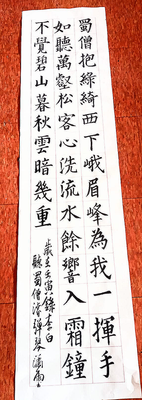 蜀僧抱綠綺西下峨眉峰為我一揮手
如聽萬壑松客心洗流水餘響入霜鐘
不覺碧山暮秋雲暗幾重
歲在壬寅錄李白
聽蜀僧濬彈琴